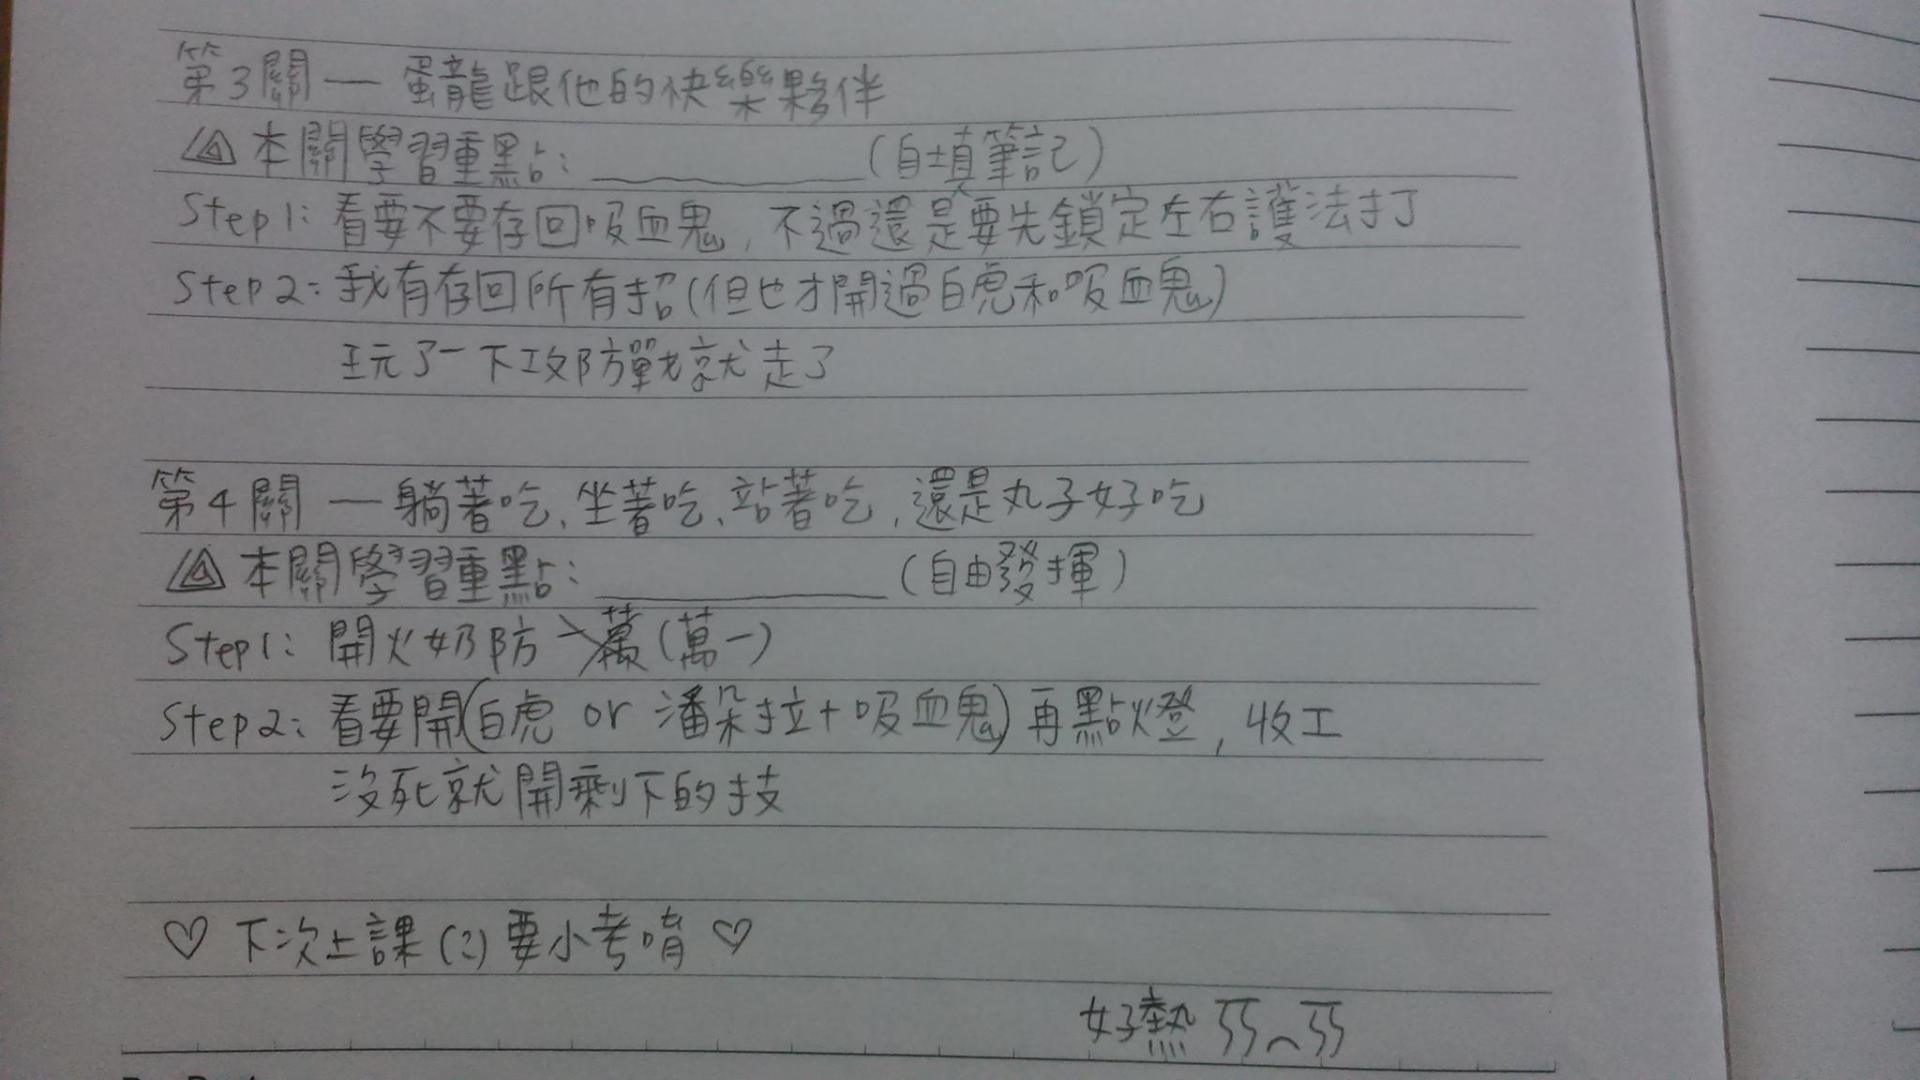 第3關 — 蛋龍跟他的快樂夥伴
本關學習重點：＿＿＿＿＿(自填筆記)
Step1: 看要不要存回吸血鬼, 不過還是要先鎖定左右護法打
Step2: 我有存回所有招(但也才開過白虎和吸血鬼)
玩了一下攻防戰就走了
第4關 — 躺著吃、坐著吃、站著吃, 還是丸子好吃
本關學習重點：＿＿＿＿＿(自由發揮)
Step1: 開火奶防一萬(萬一)
Step2: 看要開(白虎 or 潘朵拉+吸血鬼)再點燈, 收工
沒死就開剩下的技
♡ 下次上課(?)要小考唷 ♡
好熱 ㄎㄎ︿ㄎㄎ